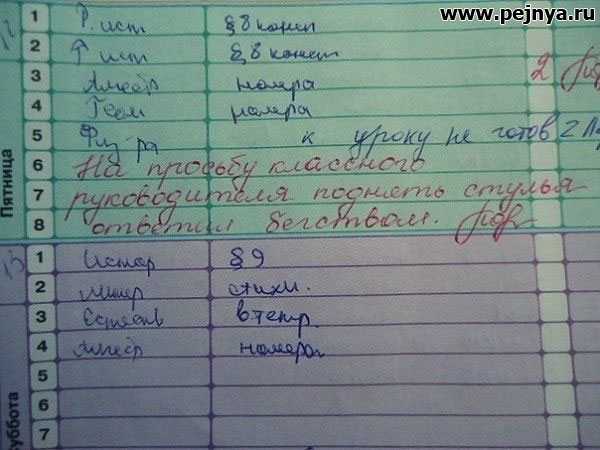 www.pejnya.ru
12
1 Р. ист § 8 конеп
2 Р ист § 8 конст
3 Алгебр номера 2
4 Геом номера
5 Физ-ра к уроку не готов 2
Пятница
6 На просьбу классного
7 руководителя поднять стулья
8 ответил бегством.
13
1 Истор § 9
2 Литер стихи.
3 Естеств в тетр.
4 Алгебр номера
5
6
7
Суббота